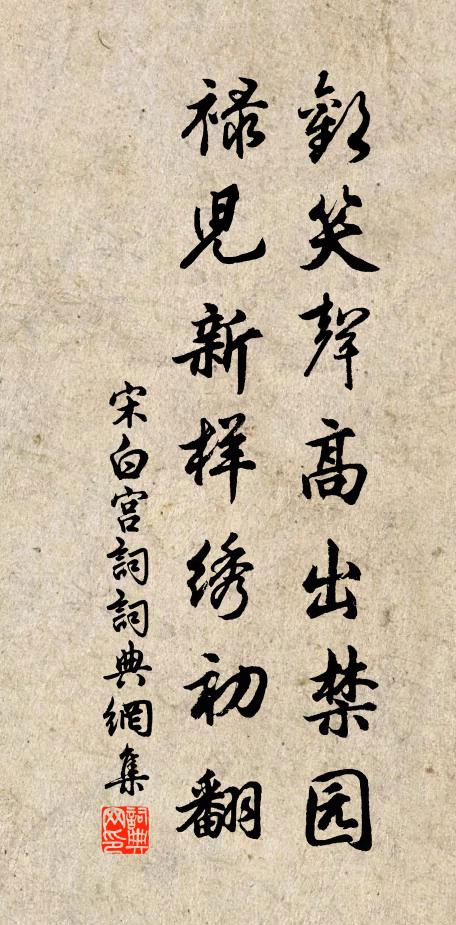 歡笑聲高出禁园
禄児新样绣初翻
宋白宫詞詞典網集
詞典网印